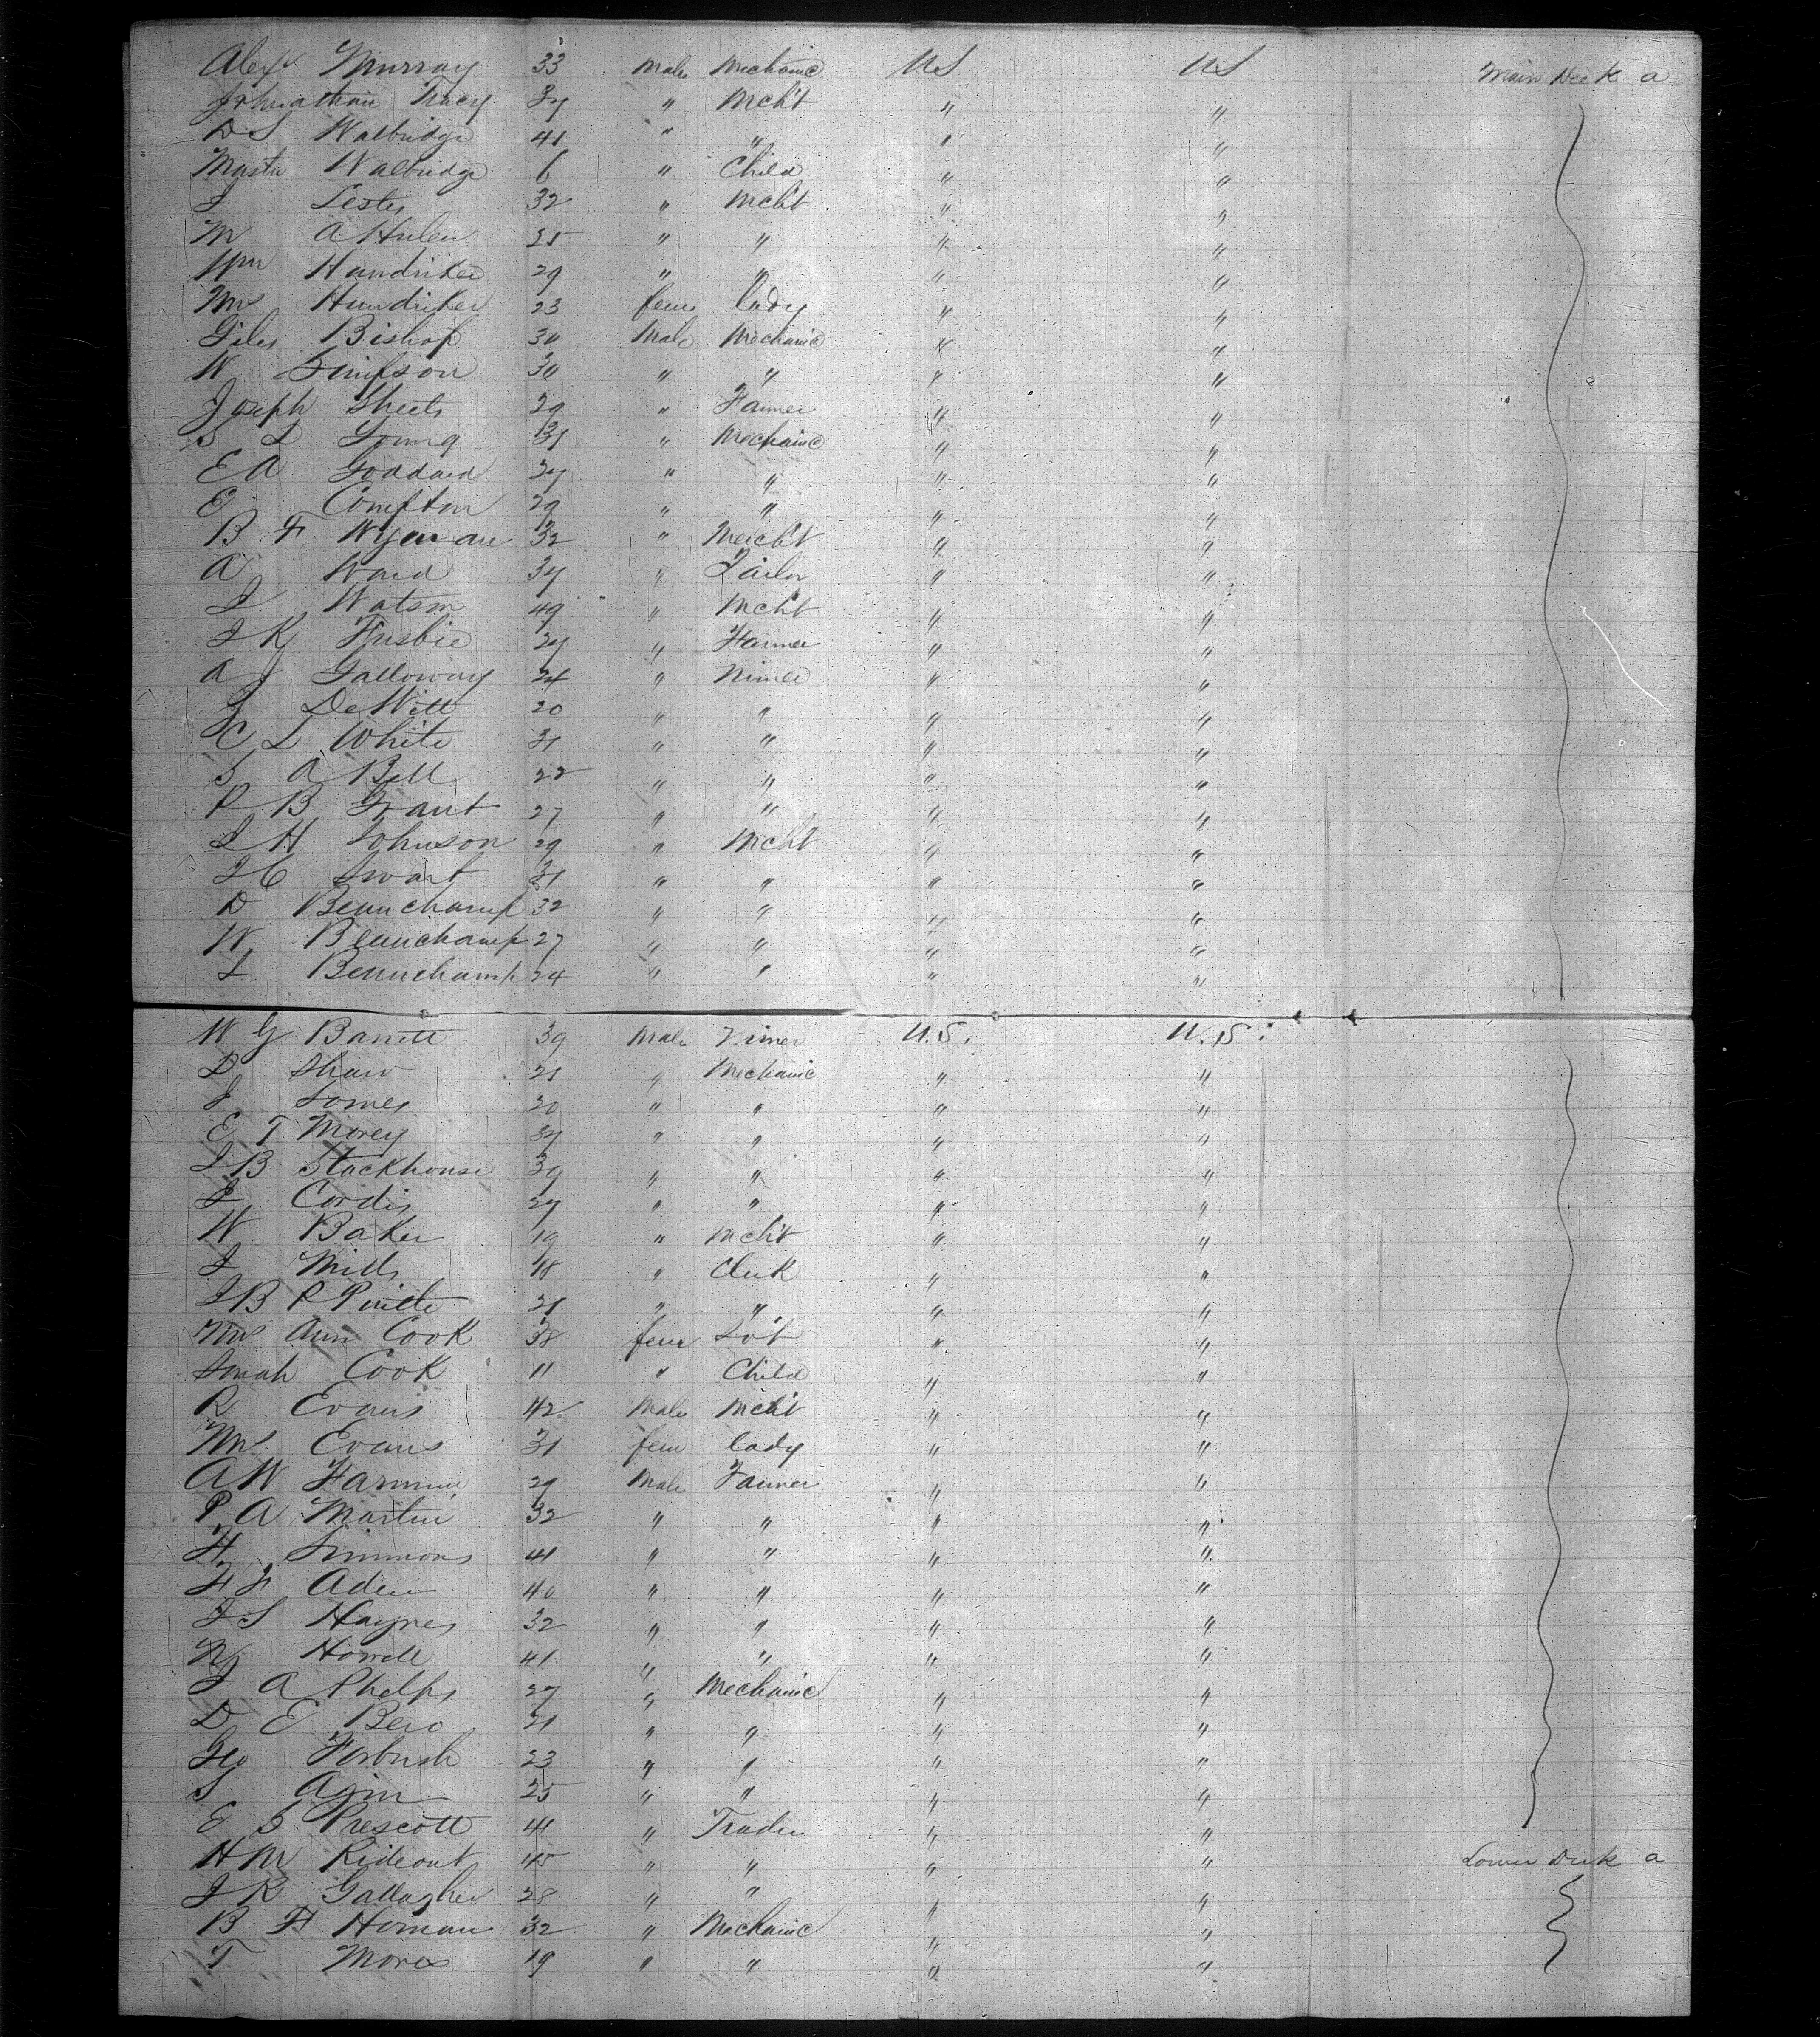 Alexr Murray 33 Male Mechanic US US Main Deck a
Johnathan Tracy 37 " Mcht " "
D S Walbridge 41 " " " "
Mastr Walbridge 6 " Child " "
J Lester 32 " Mcht " "
M A Hulen 25 " " " "
Wm Hendriker 29 " " " "
Mrs Hendriker 23 fem lady " "
Giles Bishop 30 Male Mechanic " "
W Simpson 30 " " " "
Joseph Sheets 29 " Farmer " "
S L Young 31 " Mechanic " "
E A Goddard 27 " " " "
E Compton 29 " " " "
B F Wyman 32 " Mercht " "
A Ward 37 " Tailor " "
J Watson 49 " Mcht " "
J K Frisbie 27 " Farmer " "
A J Galloway 24 " Miner " "
J DeWitt 20 " " " "
C L White 21 " " " "
S A Bell 22 " " " "
P B Grant 27 " " " "
J H Johnson 29 " Mcht " "
J C Swart 21 " " " "
D Beauchamp 32 " " " "
W Beauchamp 27 " " " "
J Beauchamp 24 " " " "
W G Barrett 39 Male Miner U.S. U.S.
D Shaw 21 " Mechanic " "
J Somes 20 " " " "
E T Morey 37 " " " "
J B Stackhouse 39 " " " "
J Cordis 27 " " " "
W Baker 19 " Mcht " "
J Mills 18 " Clerk " "
J B P 21 " " " "
Mrs Ann Cook 38 fem " "
Sarah Cook 11 " Child " "
R Evans 42 Male Mcht " "
Mrs Evans 31 fem lady " "
A W 29 Male Farmer " "
P A Martin 32 " " " "
H Simmons 41 " " " "
F F Aden 40 " " " "
J S Haynes 32 " " " "
W Howell 41 " " " "
J A Phelps 27 " Mechanic " "
D E Bero 21 " " " "
Geo Forbush 23 " " " "
S 25 " " " "
E S Prescott 41 " Trader " "
H M Rideout 45 " " " " Lower Deck a
J R Gallagher 28 " " " "
B F Homan 32 " Mechanic " "
T 19 " " " "